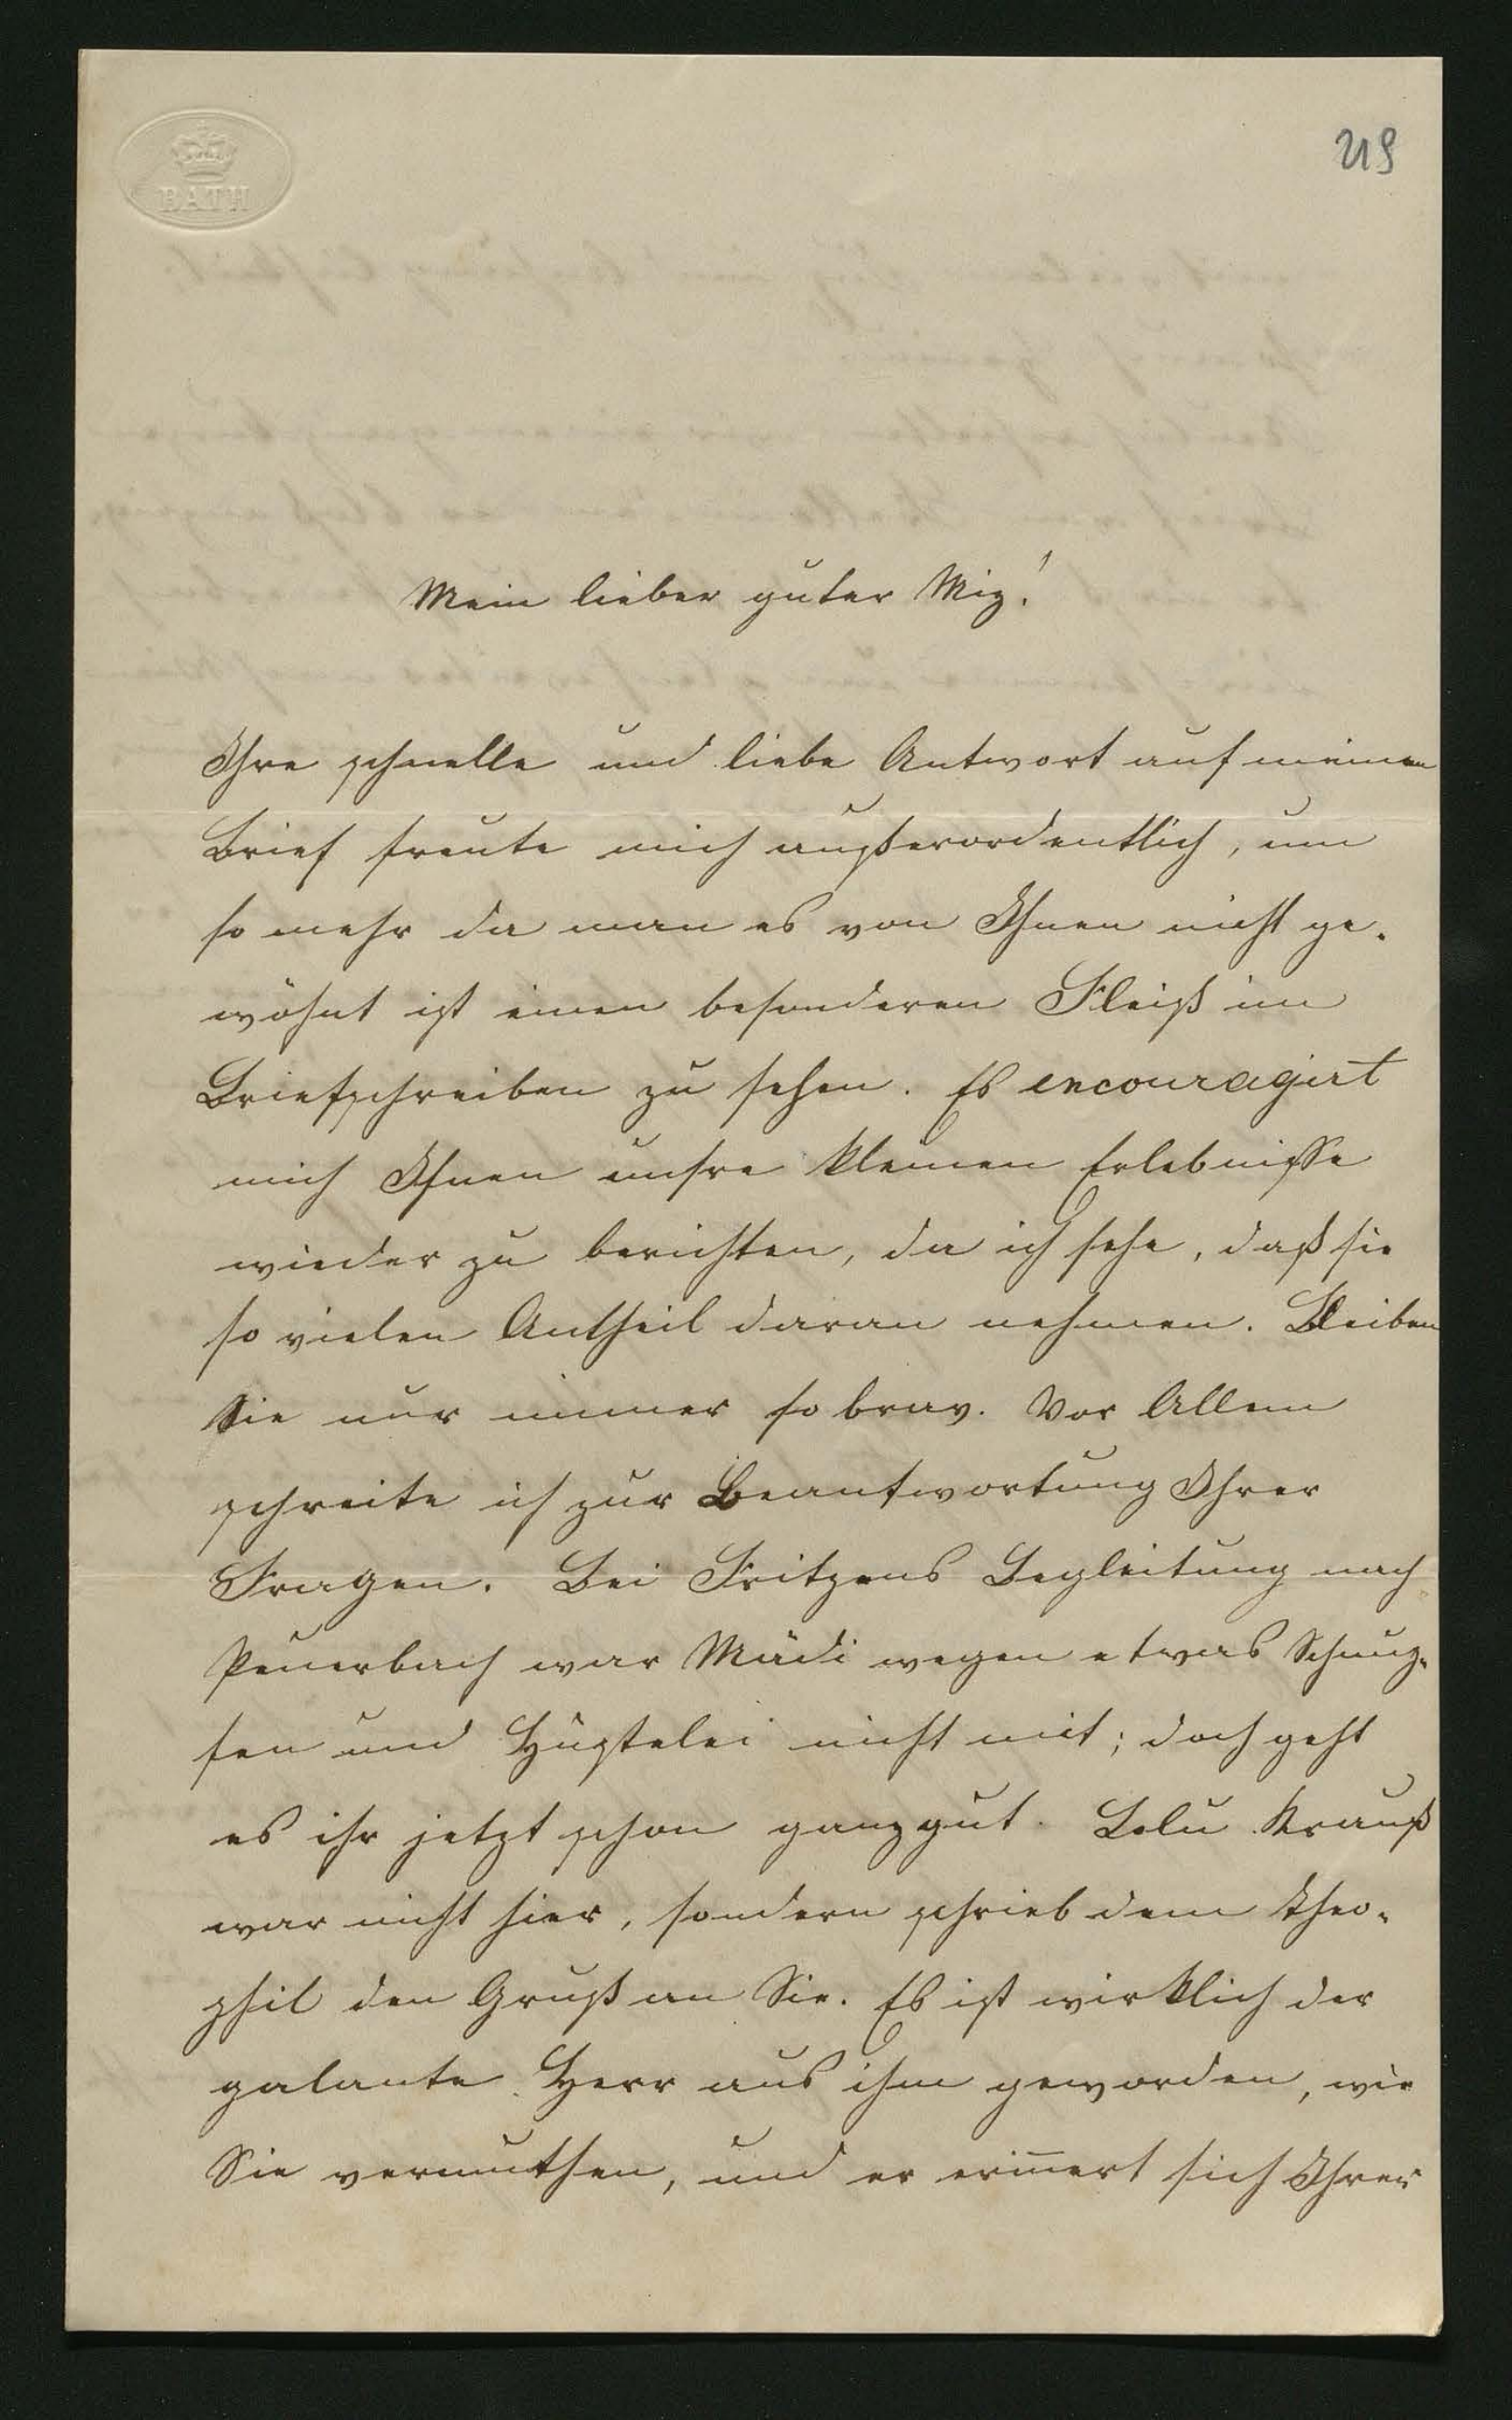 BATH
219
Mein lieber guter Miz!
Ihre schnelle und liebe Antwort auf meinen
Brief freute mich außerordentlich, um
so mehr da man es von Ihnen nicht ge-
wöhnt ist einen besonderen Fleiß im
Briefschreiben zu sehen. Es encouragirt
mich Ihnen unsre kleinen Erlebnisse
wieder zu berichten, da ich sehe, daß sie
so vielen Antheil daran nehmen. Bleiben
Sie nur immer so brav. Vor Allem
schreite ich zur Beantwortung Ihrer
Fragen. Bei Fritzens Begleitung nach
Peuerbach war Mädi wegen etwas Schnup-
fen und Hüstelei nicht mit; doch geht
es ihr jetzt schon ganz gut. Lolu Krauß
war nicht hier, sondern schrieb dem Theo-
phil den Gruß an Sie. Es ist wirklich der
galante Herr aus ihm geworden, wie
Sie vermuthen, und er erinnert sich Ihrer